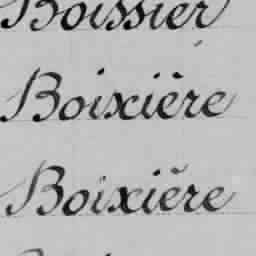 Boissier
Boixière
Boixière